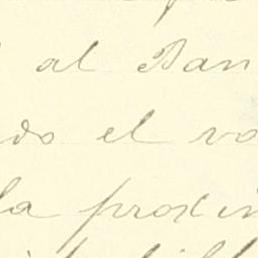 al Ban
do el vo
la proxim